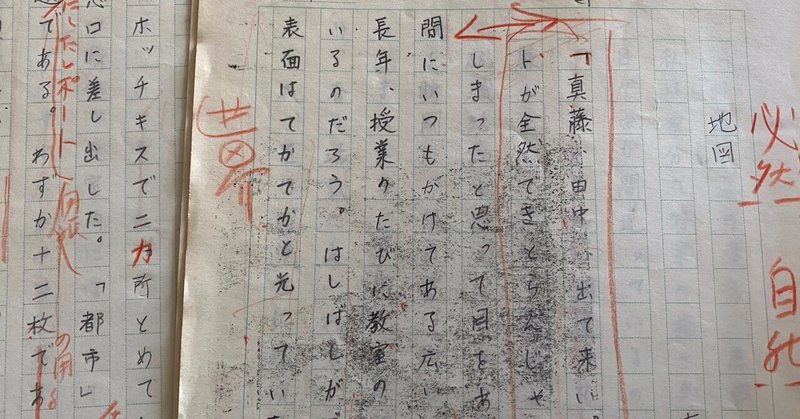 必然
自然
地図
「真藤、田中、出て来い。
トが全然できとらんじゃ
しまったと思って目をあ
間にいつもかけてある広い
長年、授業のたびに教室の
いるのだろう。はしばしが
表面はてかてかと光ってい
世界
ホッチキスで二カ所とめて
窓口に差し出した。「都市」
である。わずか十二枚であ